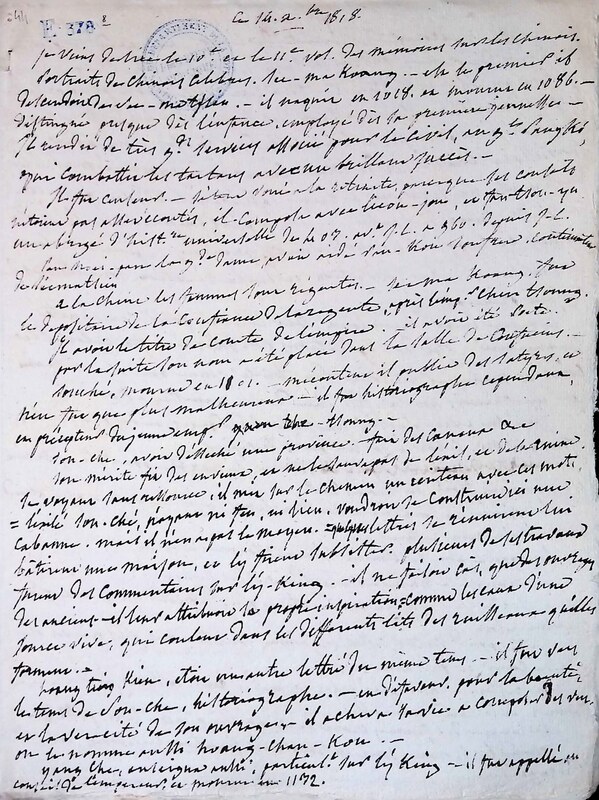 F. 378 8
Ce 14. 2.bre 1818.
je viens de lire le 10e et le 11e vol. des mémoires sur les chinois.
Portraits de chinois Célebres. See-ma Koang. - est le premier il
descendoit de See-ma-tsien. - il naquit en 1018. et mourut en 1086. -
distingué presque dès l'enfance, employé dès sa première jeunesse -
Il rendit de très gds services associé pour le civil, au gal Pang Ki,
qui combattit les tartares avec un brillant succès. -
Il fut censeur. - s'étant voué à la retraite, parceque ses conseils
n'étoient pas assez écoutés, il composa avec lieou-jou, et fan-tsou-yu
un abrégé d'histre universelle de 407. av. J.C. à 960. depuis J.C.
Pan hoei-pan la gde dame avoit aidé Pan-Kou son frere, continuateur
de Seematsien
à la Chine les femmes sont régentes. - See ma Koang. fut
le dépositaire de la confiance de la régente, après l'emp. Chen tsoung.
Il avoit le titre de comte de l'empire. - il avoit été poete.
par la suite son nom a été placé dans la salle de Confucius. -
Sou ché, mourut en 1101. - mécontent il publie des satyres, et
n'en fut que plus malheureux - il fut historiographe cependant,
et précepteur du jeune emp. tche-tsoung. -
Sou-che, avoit desséché une province. - fait des canaux &c
son mérite fit des envieux, et ne le sauve pas de l'exil, et de la ruine
se voyant sans ressource, il mit sur le chemin un écriteau avec ces mots
= l'exilé Sou-ché, n'ayant ni feu, ni lieu, voudroit se construire ici une
cabanne, mais il n'en a pas le moyen. = les lettrés se réunirent lui
bâtirent une maison, et la firent subsister. plusieurs de ses travaux
furent des commentaires sur l'y-King. - il ne faisoit cas, que des ouvrages
des anciens - il leur attribuoit la propre inspiration = comme les eaux d'une
source vive, qui coulent dans les différents lits des ruisseaux qu'elles
forment. -
hoang ting Kien, étoit un autre lettré du même tems - il fut vers
le tems de Sou-che, historiographe. - en défaveur pour la beauté
et la véracité de son ouvrage - il acheva sa vie à composer des vers,
on le nomme aussi hoang-chan-Kou. -
yang che, enseigna aussi, particult sur l'y King - il fut appellé au
conseil de l'empereur, et mourut en 1132.